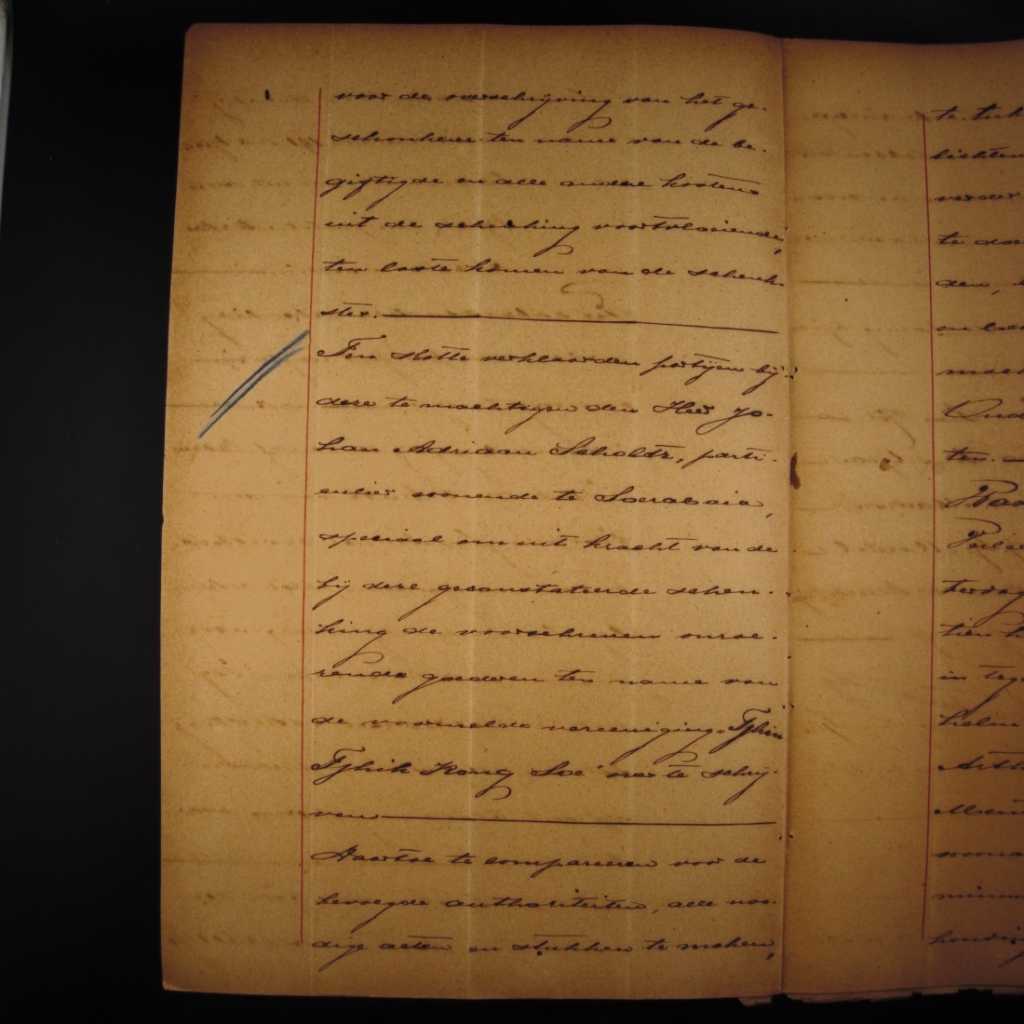 voor de overschrijving van het ge-
schonkene ten name van de be-
giftigde en alle andere kosten
uit de schenking voortvloeiende,
ten laste komen van de schenk-
ster.
Ten slotte verklaarden partijen bij
deze te machtigen den Heer Jo-
han Adriaan Scholdtz, parti-
culier wonende te Soerabaia,
speciaal om uit kracht van de
bij deze geconstateerde schen-
king de voorschreven onroe-
rende goederen ten name van
de voormelde vereeniging "Tjhin
Tjhik Kong Soe" over te schrij-
ven.
Daartoe te compareeren voor de
bevoegde authoriteiten, alle noo-
dige acten en stukken te maken,
te
lichten
verder
te doen
den,
Oud
ten.
in tege
helm
woona